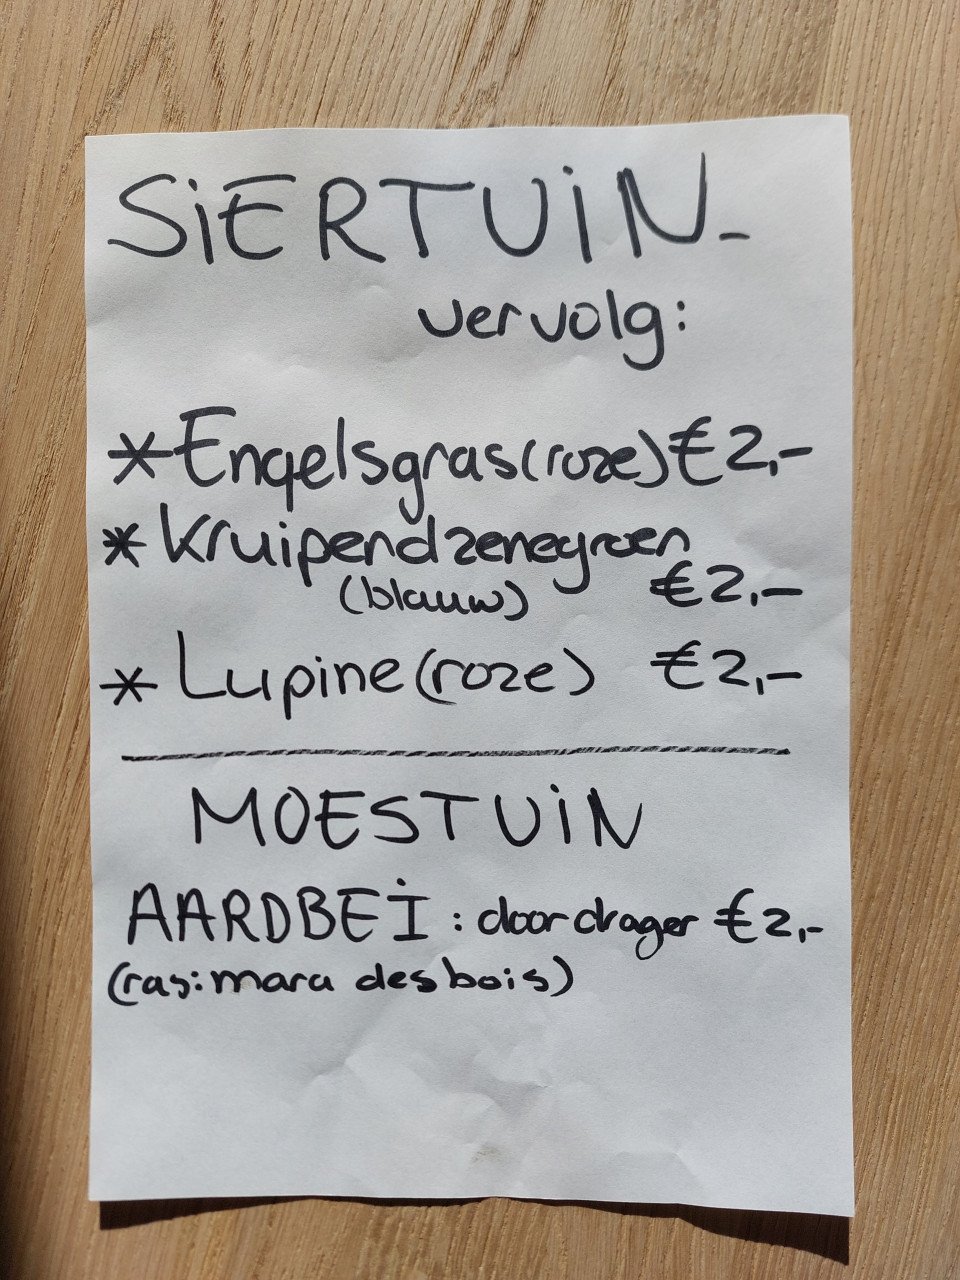 SiERTUiN-
vervolg:
* Engelsgras (roze) €2,-
* Kruipend zenegroen
(blauw) €2,-
* Lupine (roze) €2,-
MOESTUiN
AARDBEI : doordrager €2,-
(ras: mara des bois)